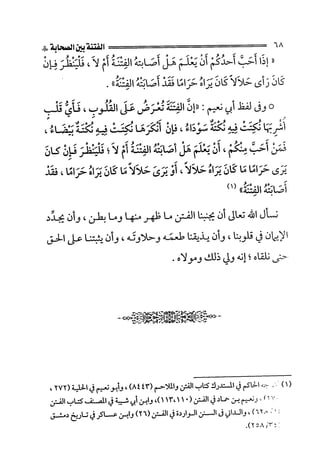 ٦٨ الفتنة بين الصحابة
« إِذَا أَحَبَّ أَحَدُكُمْ أَنْ يَعْلَمَ هَلْ أَصَابَتْهُ الفِتْنَةُ أَمْ لاَ ، فَلْيَنْظُرْ فَإِنْ
كَانَ رَأى حَلاَلاً كَانَ يَرَاهُ حَرَامًا فَقَدْ أَصَابَتْهُ الفِتْنَةُ» .
○ وفى لفظ أبي نعيم : «إِنَّ الفِتْنَةَ تُعْرَضُ عَلَى القُلُوبِ ، فَأَيُّ قَلْبٍ
أُشْرِبَهَا نُكِتَتْ فِيهِ نُكْتَةٌ سَوْدَاءُ ، فَإِنْ أَنْكَرَهَا نُكِتَتْ فِيهِ نُكْتَةٌ بَيْضَاءُ ،
فَمَنْ أَحَبَّ مِنْكُمْ ، أَنْ يَعْلَمَ هَلْ أَصَابَتْهُ الفِتْنَةُ أَمْ لاَ ؛ فَلْيَنْظُرْ فَإِنْ كَانَ
يَرَى حَرَامًا مَا كَانَ يَرَاهُ حَلاَلاً ، أَوْ يَرَى حَلاَلاً مَا كَانَ يَرَاهُ حَرَامًا ، فَقَدْ
أَصَابَتْهُ الفِتْنَةُ» (١)
نسأل الله تعالى أن يجنبنا الفتن ما ظهر منها وما بطن ، وأن يجدِّد
الإيمان في قلوبنا ، وأن يذيقنا طعمه وحلاوته ، وأن يثبتنا على الحق
حتى نلقاه ؛ إنه ولي ذلك ومولاه .
(١) الحاكم في المستدرك كتاب الفتن والملاحم (٨٤٤٣) ، وأبو نعيم في الحلية (٢٧٢ ،
ونعيم بن حماد في الفتن (١١٠، ١١٣) ، وابن أبي شيبة في المصنف كتاب الفتن
، والداني في السنن الواردة في الفتن (٢٦) وابن عساكر في تاريخ دمشق
٢٥٨).